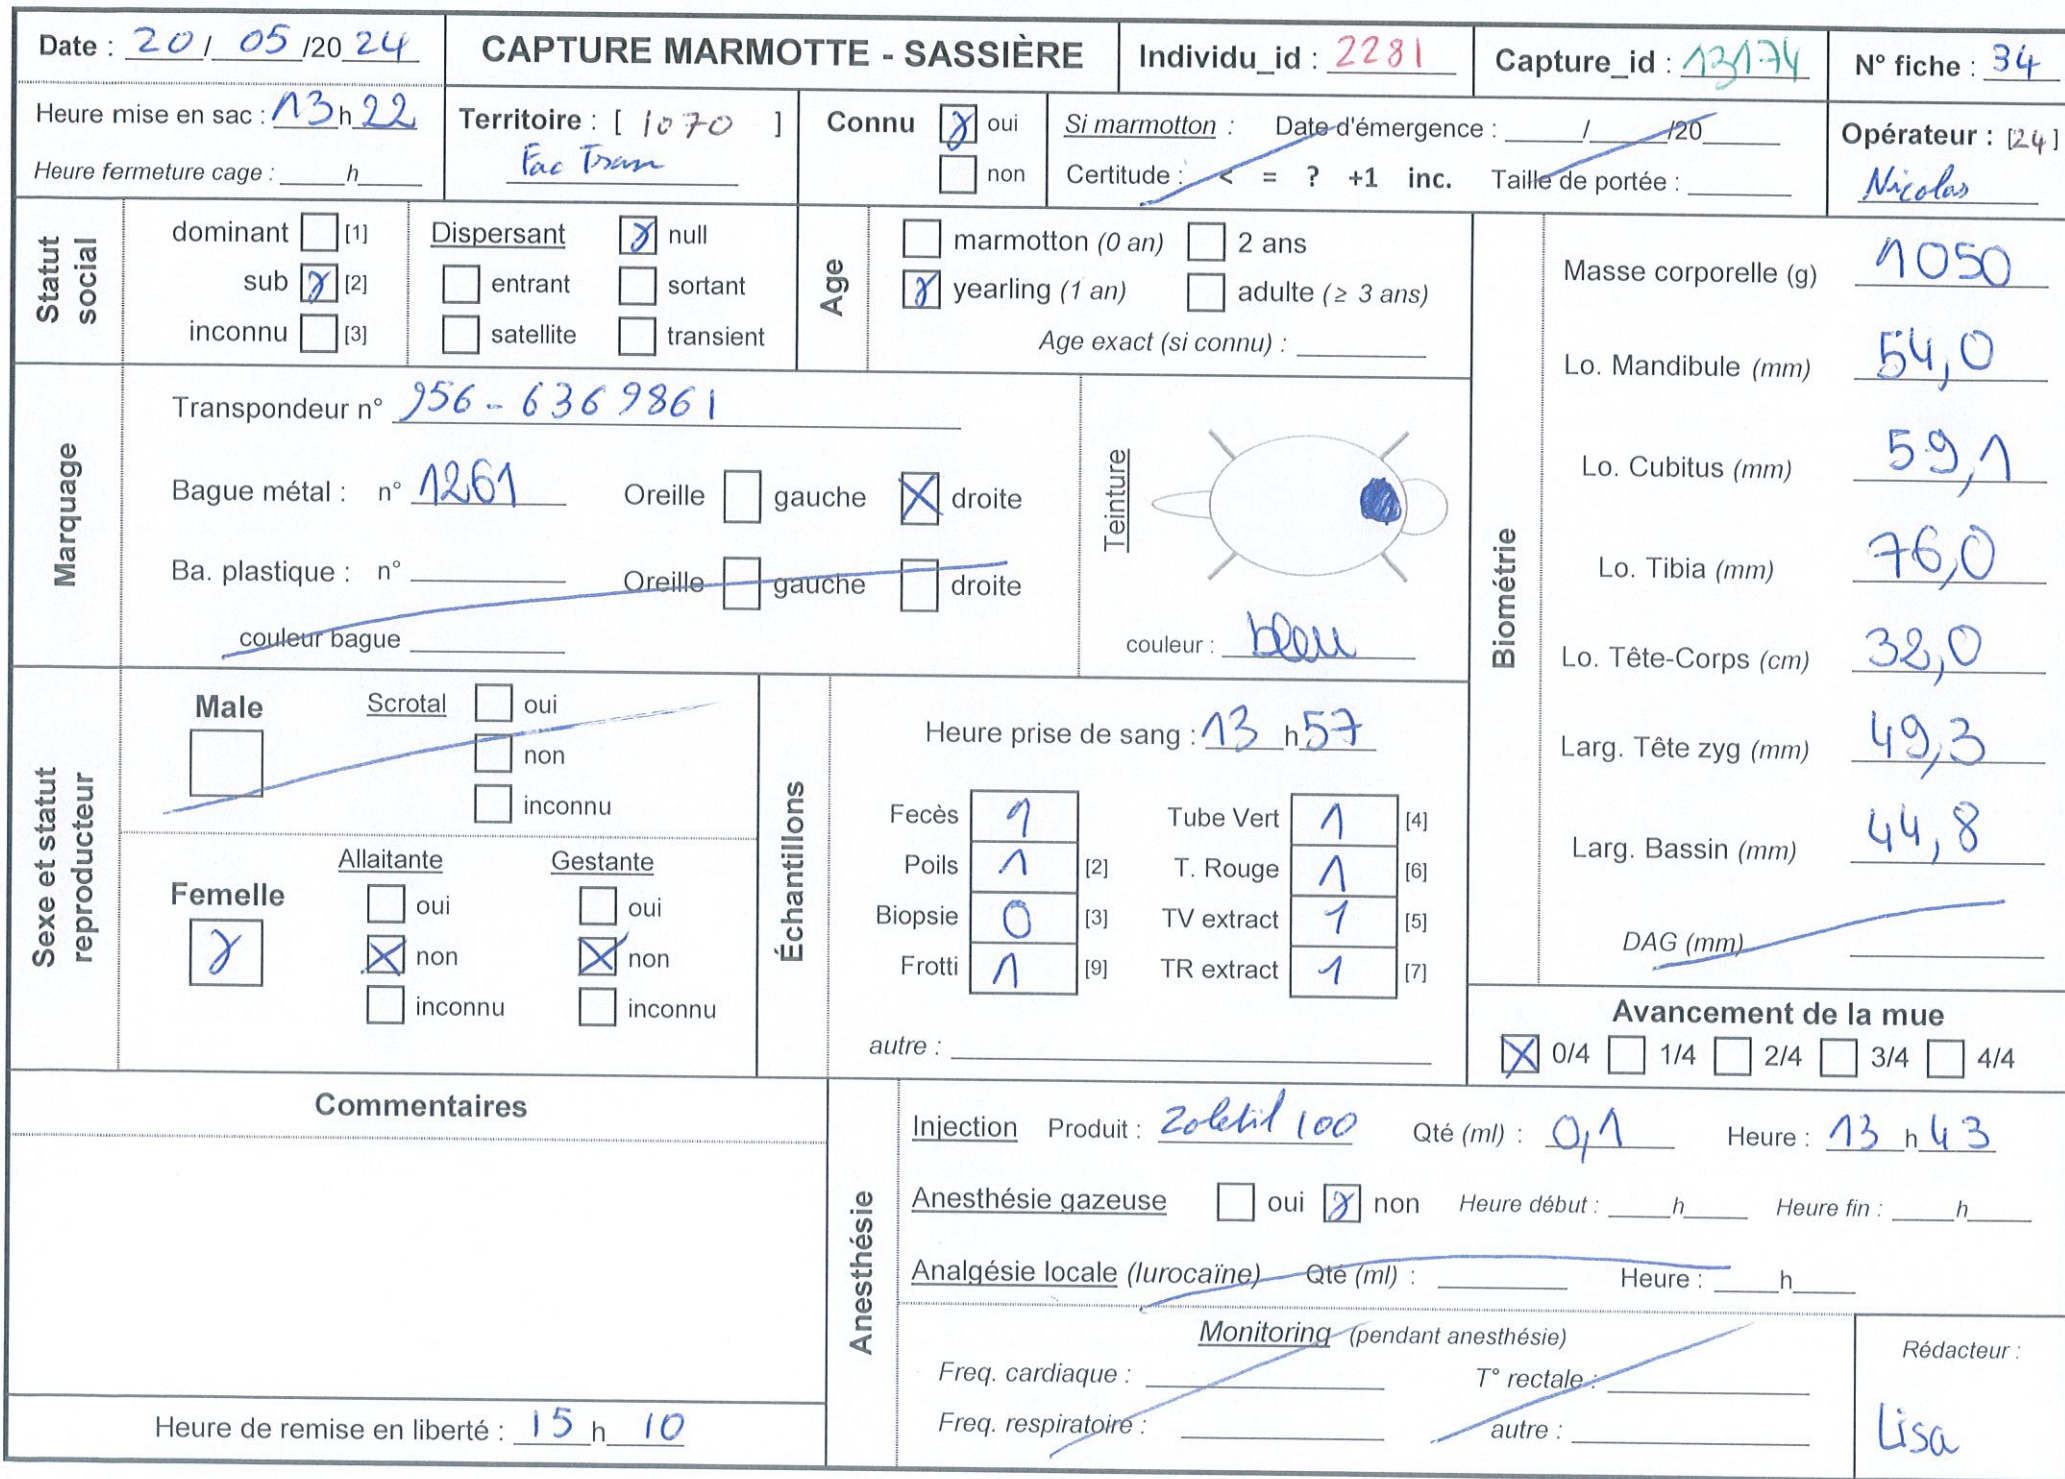 Date : 20 / 05 /20 24
CAPTURE MARMOTTE - SASSIÈRE
Individu_id : 2281
Capture_id : 13174
N° fiche : 34
Heure mise en sac : 13 h 22
Heure fermeture cage : ____h____
Territoire : [ 1070 ]
Fac Tran
Connu
oui
non
Si marmotton : Date d'émergence : ____/____/20____
Certitude : < = ? +1 inc. Taille de portée : ____
Opérateur : [24]
Nicolas
Statut social
dominant [1]
sub [2]
inconnu [3]
Dispersant
null
entrant
sortant
satellite
transient
Age
marmotton (0 an)
2 ans
yearling (1 an)
adulte (≥ 3 ans)
Age exact (si connu) : ____
Marquage
Transpondeur n° 956-6369861
Bague métal : n° 1261 Oreille gauche droite
Ba. plastique : n° ____ Oreille gauche droite
couleur bague ____
Teinture
couleur : bleu
Biométrie
Masse corporelle (g) 1050
Lo. Mandibule (mm) 54,0
Lo. Cubitus (mm) 59,1
Lo. Tibia (mm) 76,0
Lo. Tête-Corps (cm) 32,0
Larg. Tête zyg (mm) 49,3
Larg. Bassin (mm) 44,8
DAG (mm) ____
Avancement de la mue
0/4 1/4 2/4 3/4 4/4
Sexe et statut reproducteur
Male
Scrotal
oui
non
inconnu
Femelle
Allaitante
oui
non
inconnu
Gestante
oui
non
inconnu
Échantillons
Heure prise de sang : 13 h 57
Fecès 1 Tube Vert 1 [4]
Poils 1 [2] T. Rouge 1 [6]
Biopsie 0 [3] TV extract 1 [5]
Frotti 1 [9] TR extract 1 [7]
autre : ____
Commentaires
Heure de remise en liberté : 15 h 10
Anesthésie
Injection Produit : Zoletil 100 Qté (ml) : 0,1 Heure : 13 h 43
Anesthésie gazeuse oui non Heure début : ____h____ Heure fin : ____h____
Analgésie locale (lurocaïne) Qté (ml) : ____ Heure : ____h____
Monitoring (pendant anesthésie)
Freq. cardiaque : ____ T° rectale : ____
Freq. respiratoire : ____ autre : ____
Rédacteur :
Lisa